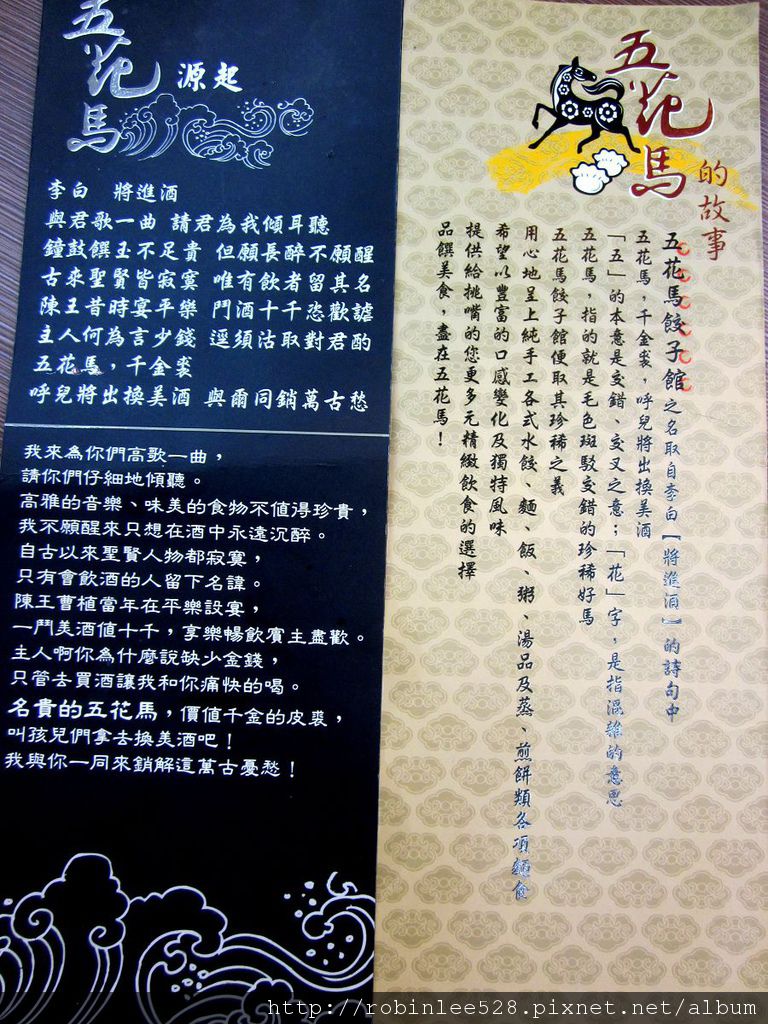 五花馬 源起
李白 將進酒
與君歌一曲 請君為我傾耳聽
鐘鼓饌玉不足貴 但願長醉不願醒
古來聖賢皆寂寞 唯有飲者留其名
陳王昔時宴平樂 鬥酒十千恣歡謔
主人何為言少錢 逕須沽取對君酌
五花馬，千金裘
呼兒將出換美酒 與爾同銷萬古愁
我來為你們高歌一曲，
請你們仔細地傾聽。
高雅的音樂、味美的食物不值得珍貴，
我不願醒來只想在酒中永遠沉醉。
自古以來聖賢人物都寂寞，
只有會飲酒的人留下名諱。
陳王曹植當年在平樂設宴，
一鬥美酒值十千，享樂暢飲賓主盡歡。
主人啊你為什麼說缺少金錢，
只管去買酒讓我和你痛快的喝。
名貴的五花馬，價值千金的皮裘，
叫孩兒們拿去換美酒吧！
我與你一同來銷解這萬古憂愁！
五花馬的故事
五花馬餃子館之名取自李白【將進酒】的詩句中
五花馬，千金裘，呼兒將出換美酒
「五」的本意是交錯、交叉之意；「花」字，是指混雜的意思
五花馬，指的就是毛色斑駁交錯的珍稀好馬
五花馬餃子館便取其珍稀之義
用心地呈上純手工各式水餃、麵、飯、粥、湯品及蒸、煎餅類各項麵食
希望以豐富的口感變化及獨特風味
提供給挑嘴的您更多元精緻飲食的選擇
品饌美食，盡在五花馬！
http://robinlee528.pixnet.net/album